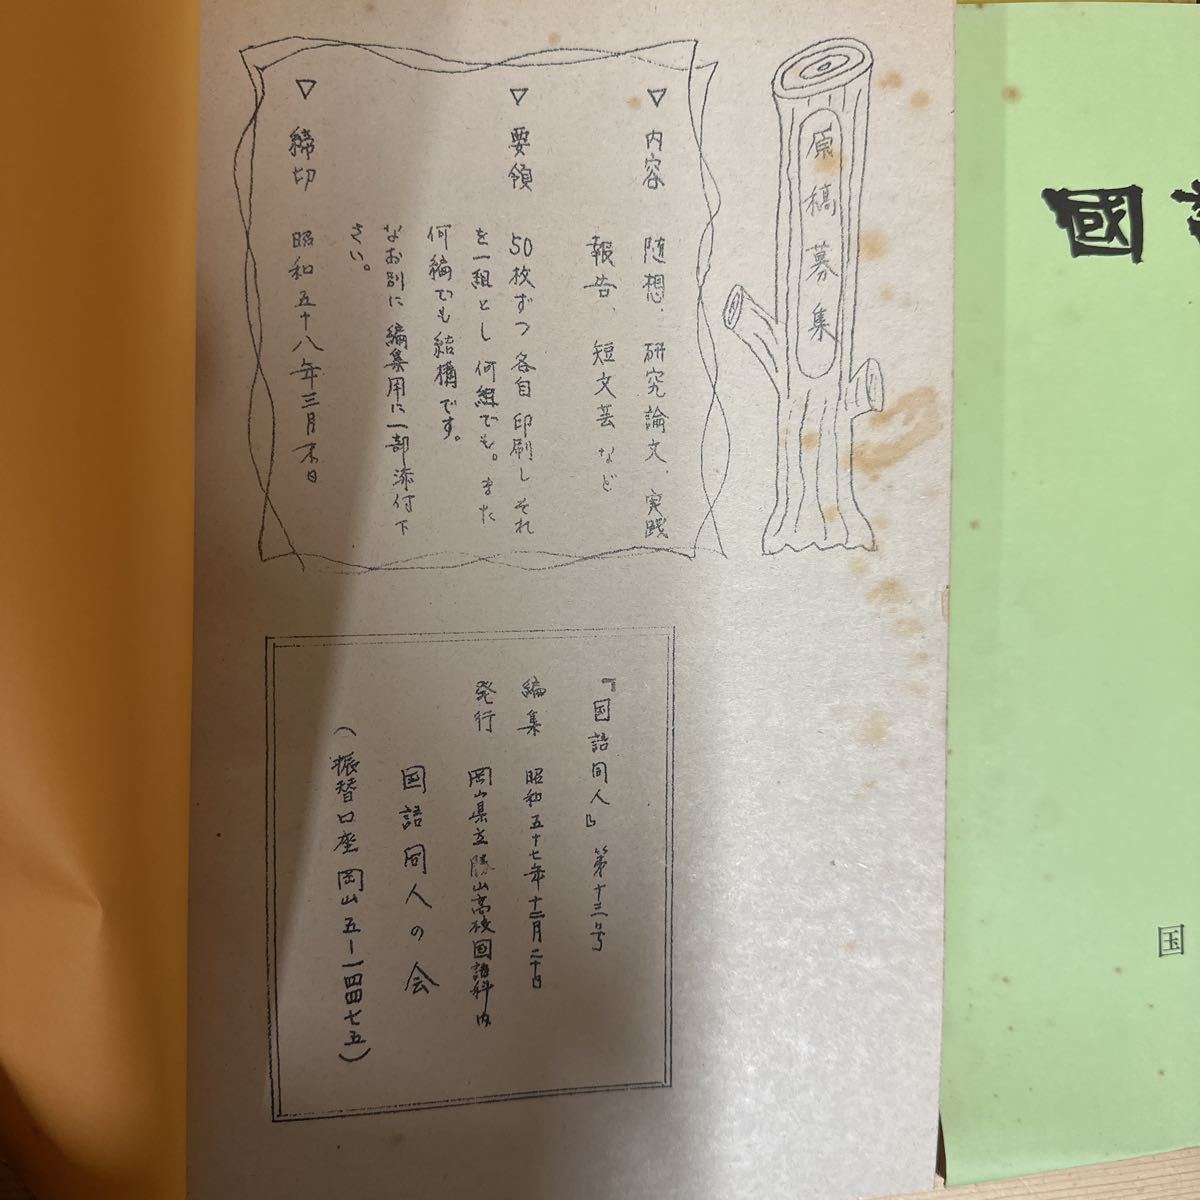 國
国
原稿募集
▽内容 随想、研究論文、実践
報告、短文芸など
▽要領 50枚ずつ各自印刷しそれ
を一組とし何組でも。また
何編でも結構です。
なお別に編集用に一部添付下
さい。
▽締切 昭和五十八年三月末日
『国語同人』第十三号
編集 昭和五十七年十二月二十日
発行 岡山県立勝山高校国語科内
国語同人の会
(振替口座 岡山五-一四四七五)